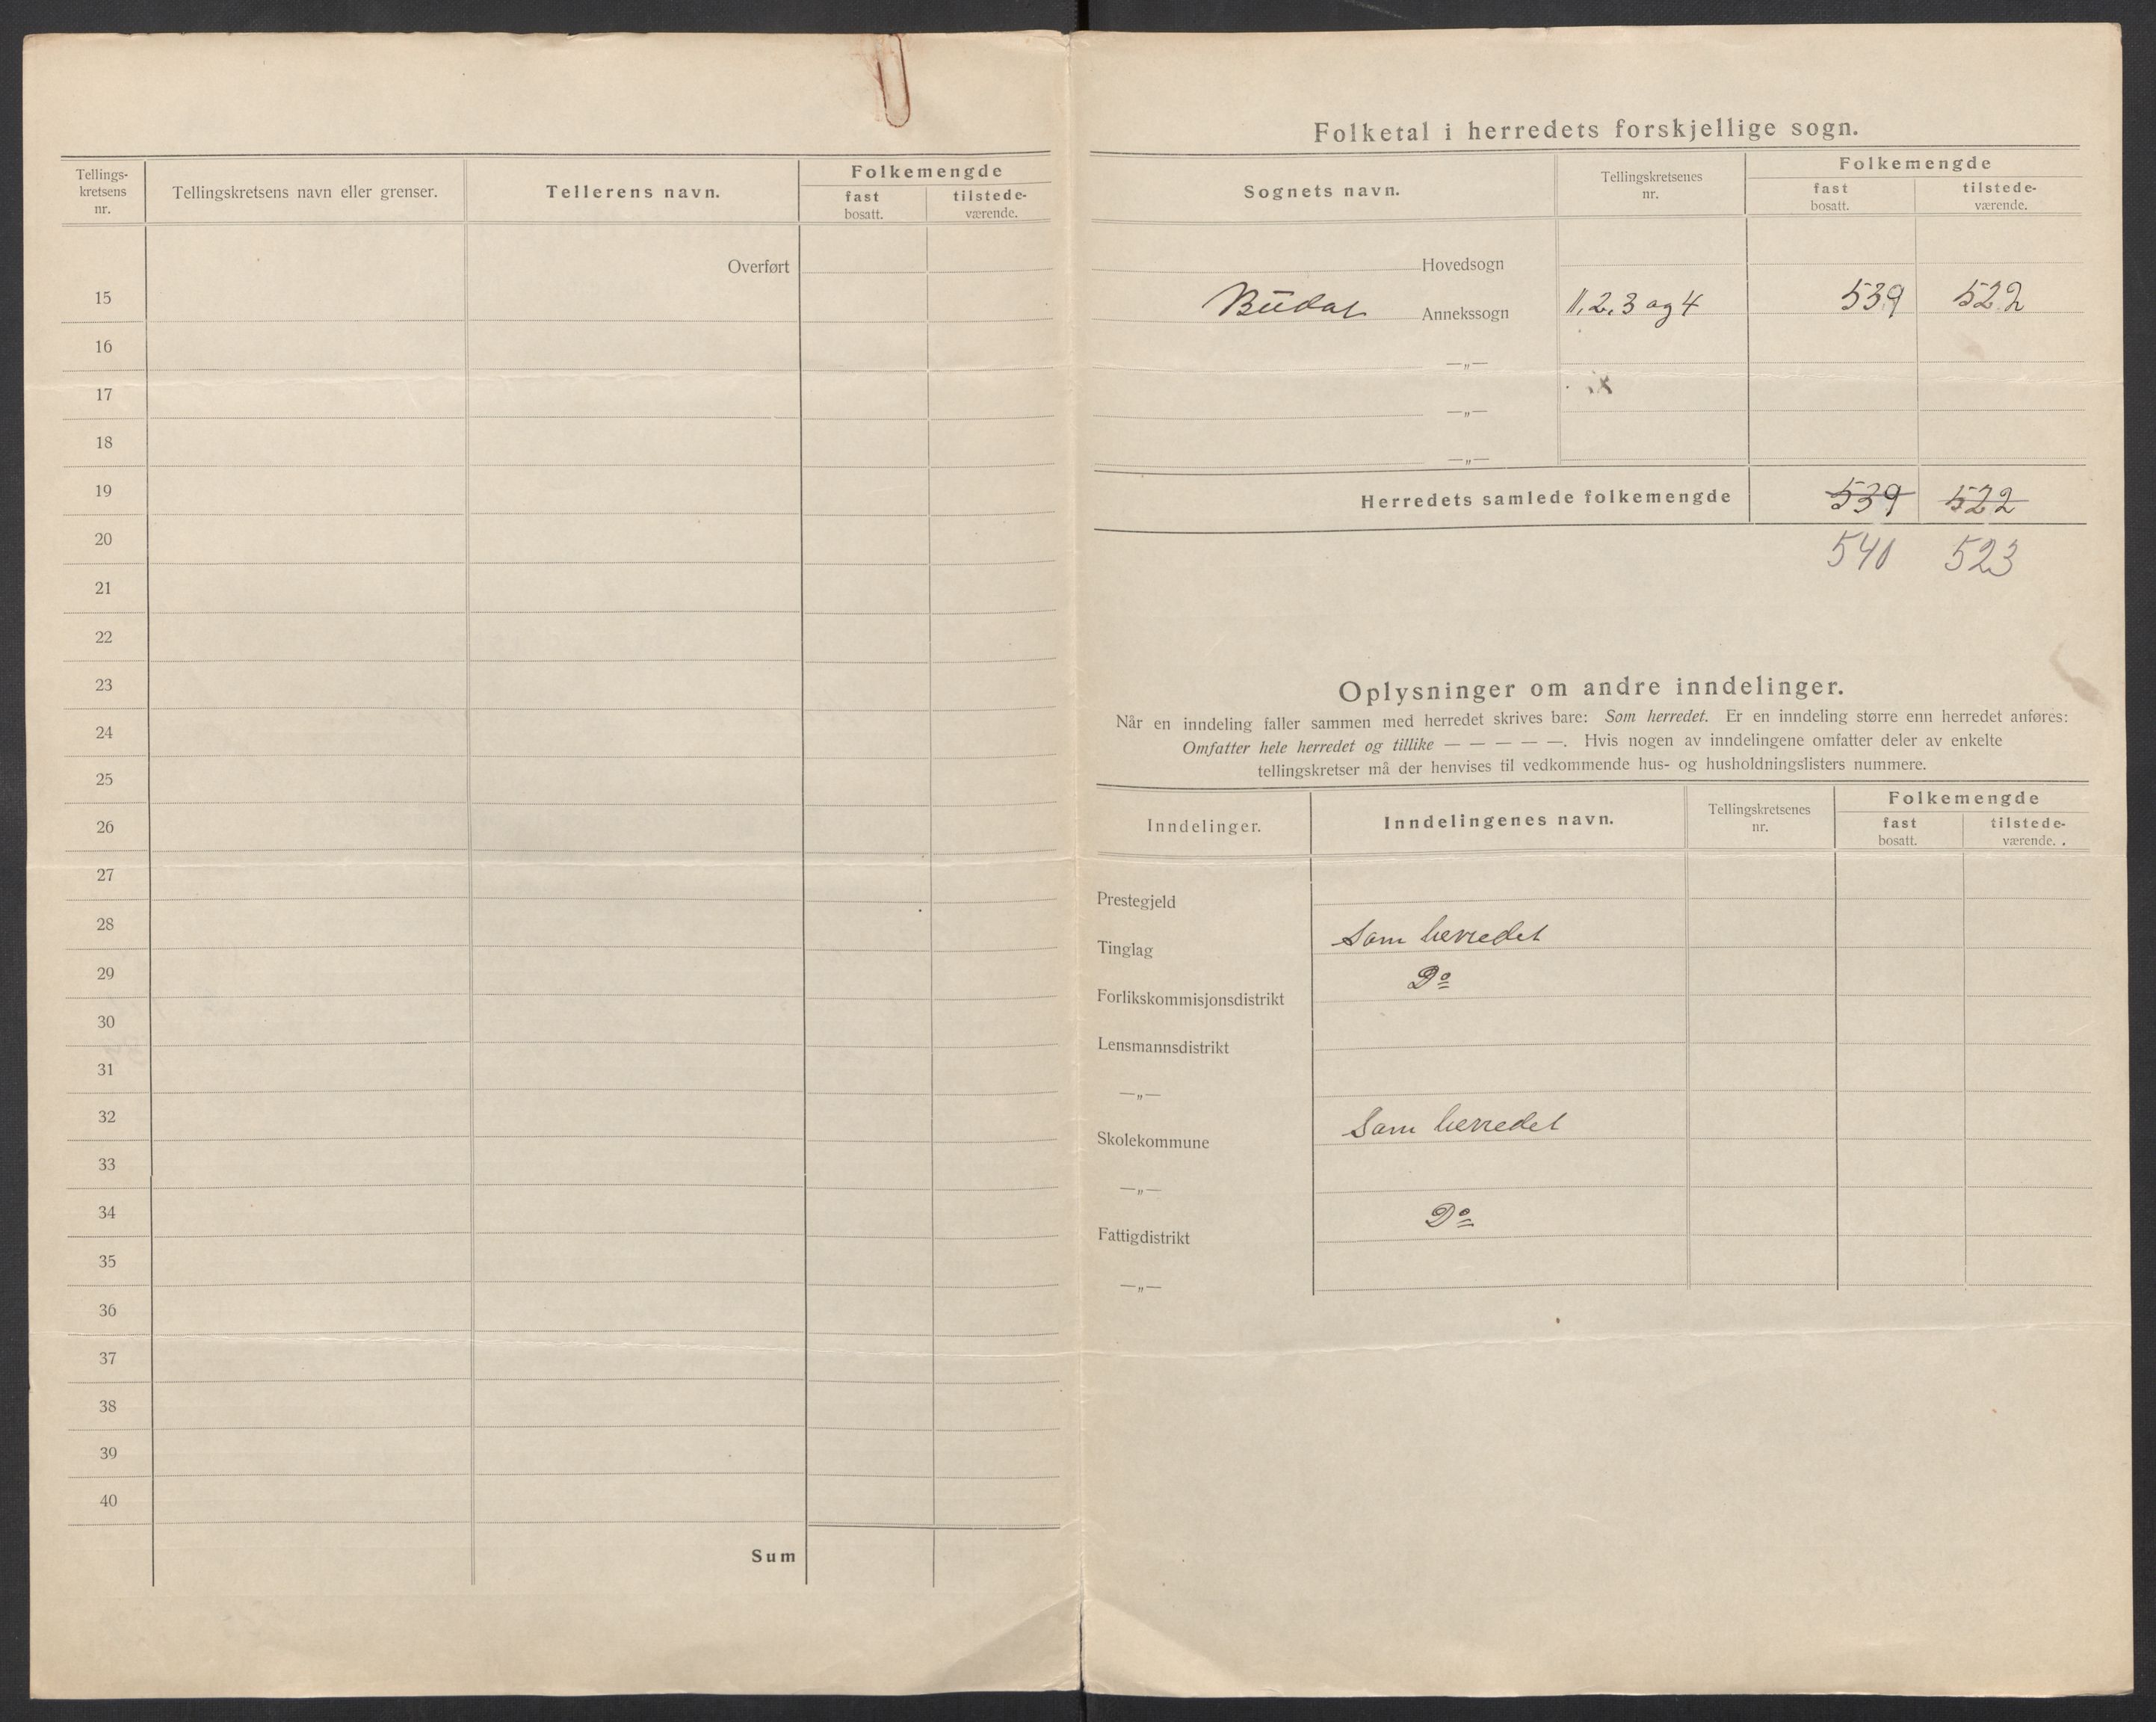 Tellings-
kretsens
nr.
Tellingskretsens navn eller grenser.
Tellerens navn.
Folkemengde
fast
bosatt.
tilstede-
værende.
Overført
15
16
17
18
19
20
21
22
23
24
25
26
27
28
29
30
31
32
33
34
35
36
37
38
39
40
Sum
Folketal i herredets forskjellige sogn.
Sognets navn.
Tellingskretsenes
nr.
Folkemengde
fast
bosatt.
tilstede-
værende.
Hovedsogn
Budal Annekssogn 1, 2, 3 og 4 539 522
—„—
—„—
—„—
Herredets samlede folkemengde 539 522
540 523
Oplysninger om andre inndelinger.
Når en inndeling faller sammen med herredet skrives bare: Som herredet. Er en inndeling større enn herredet anføres:
Omfatter hele herredet og tillike — — — — —. Hvis nogen av inndelingene omfatter deler av enkelte
tellingskretser må der henvises til vedkommende hus- og husholdningslisters nummere.
Inndelinger.
Inndelingenes navn.
Tellingskretsenes
nr.
Folkemengde
fast
bosatt.
tilstede-
værende.
Prestegjeld
Tinglag Som herredet
Forlikskommisjonsdistrikt Do
Lensmannsdistrikt
—„—
Skolekommune Som herredet
—„—
Fattigdistrikt Do
—„—